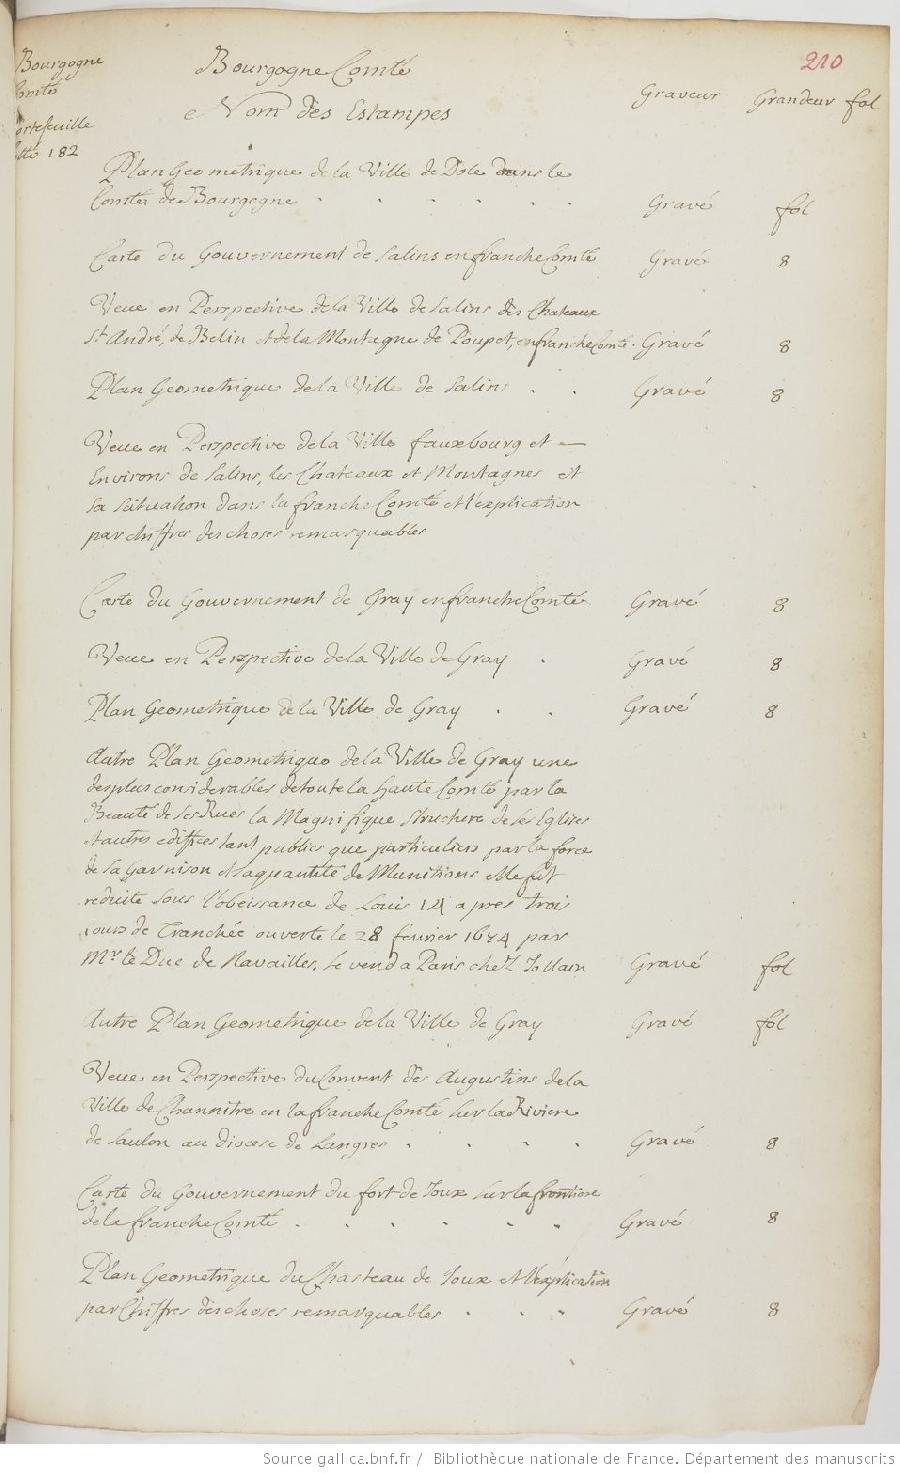 210
Bourgogne
Comté
portefeuille
cotté 182
Bourgogne Comté
Nom des Estampes
Graveur Grandeur fol
Plan Geometrique de la Ville de Dole dans le
Comté de Bourgogne . . . . . Gravé fol
Carte du Gouvernement de Salins en franche Comté Gravé 8
Veue en Perspective de la Ville de Salins des Chateaux
St. André, de Belin et de la Montagne de Poupet, en franche Comté. Gravé 8
Plan Geometrique de la Ville de Salins . . Gravé 8
Veue en Perspective de la Ville fauxbourg et
Environs de Salins, les Chateaux et Montagnes et
Sa Situation dans la franche Comté et l'explication
par chiffres des choses remarquables
Carte du Gouvernement de Gray en franche Comté Gravé 8
Veue en Perspective de la Ville de Gray . Gravé 8
Plan Geometrique de la Ville de Gray . . Gravé 8
Autre Plan Geometrique de la Ville de Gray une
des plus considerables de toute la haute Comté par la
Beauté de ses Rues la Magnifique Structure de ses Eglises
et autres edifices tant publics que particuliers par la force
de sa Garnison et la quantité de Munitions elle fut
reduite sous l'obeissance de Louis 14 apres trois
jours de Tranchée ouverte le 28 fevrier 1674 par
Mr. le Duc de Navailles. Se vend a Paris chez Jollain Gravé fol
Autre Plan Geometrique de la Ville de Gray Gravé fol
Veue en Perspective du Convent des Augustins de la
Ville de Channitre en la franche Comté sur la Riviere
de Saulon au diocese de Langres . . . . Gravé 8
Carte du Gouvernement du fort de Joux sur la frontiere
de la franche Comté . . . . . . Gravé 8
Plan Geometrique du Chasteau de Joux et l'explication
par Chiffres des choses remarquables . . . Gravé 8
Source gallica.bnf.fr / Bibliothèque nationale de France. Département des manuscrits